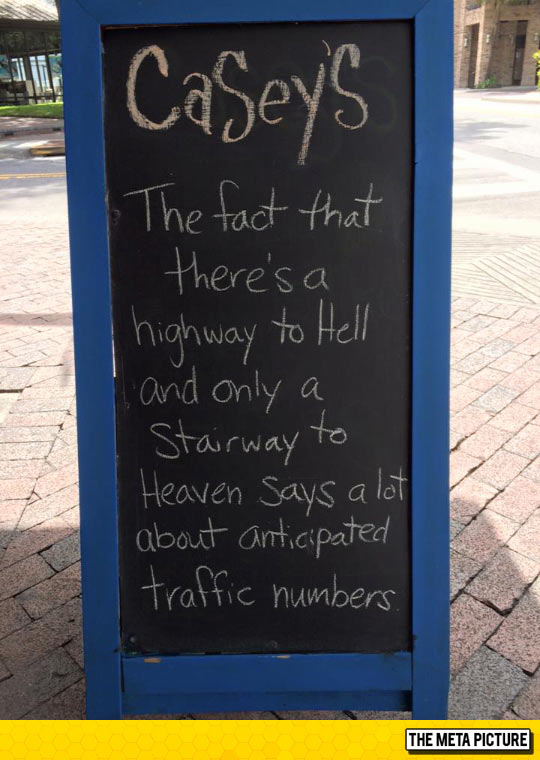 CaSey'S
The fact that
there's a
highway to Hell
and only a
Stairway to
Heaven Says a lot
about anticipated
traffic numbers.
THE META PICTURE